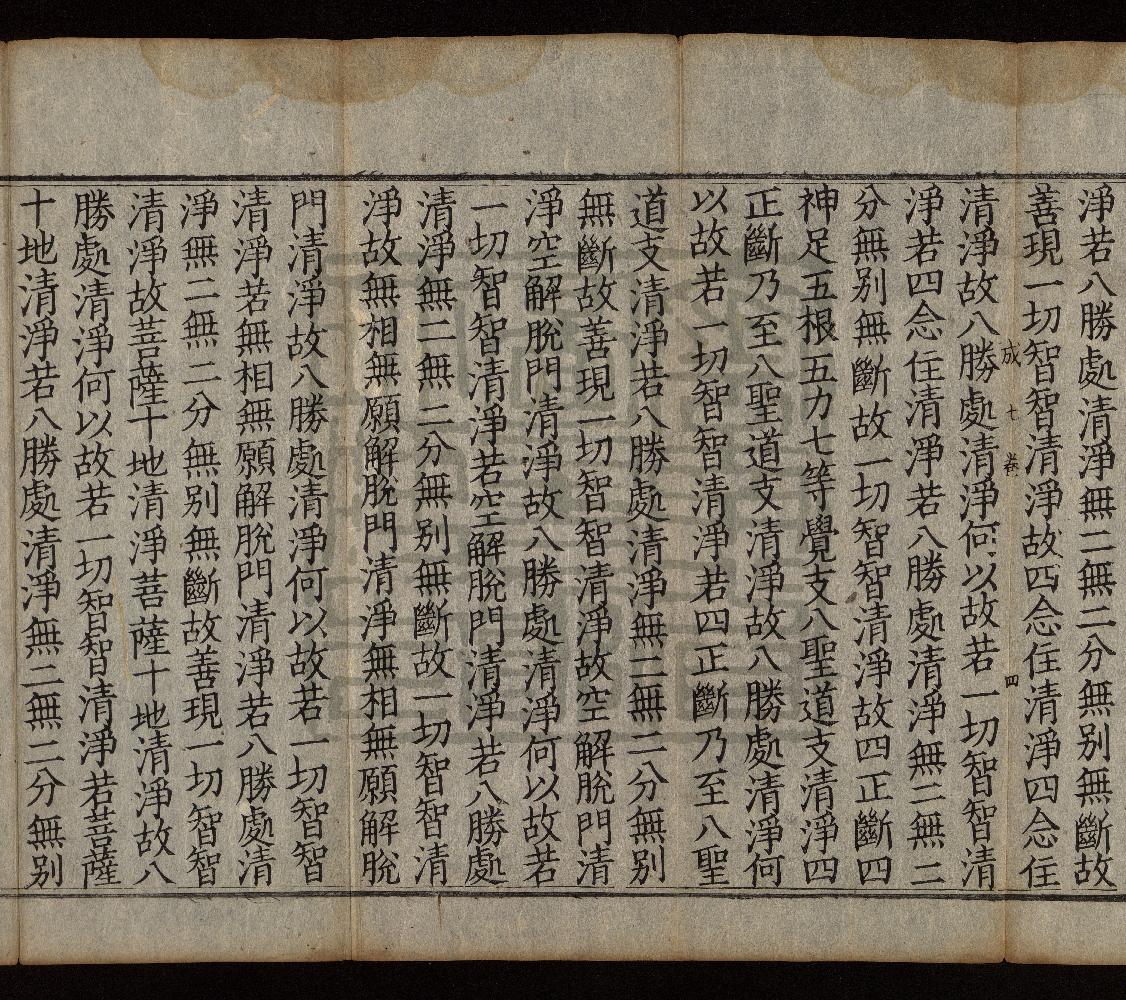 淨若八勝處清淨無二無二分無別無斷故
善現一切智智清淨故四念住清淨四念住
成 七 卷 四
清淨故八勝處清淨何以故若一切智智清
淨若四念住清淨若八勝處清淨無二無二
分無別無斷故一切智智清淨故四正斷四
神足五根五力七等覺支八聖道支清淨四
正斷乃至八聖道支清淨故八勝處清淨何
以故若一切智智清淨若四正斷乃至八聖
道支清淨若八勝處清淨無二無二分無別
無斷故善現一切智智清淨故空解脫門清
淨空解脫門清淨故八勝處清淨何以故若
一切智智清淨若空解脫門清淨若八勝處
清淨無二無二分無別無斷故一切智智清
淨故無相無願解脫門清淨無相無願解脫
門清淨故八勝處清淨何以故若一切智智
清淨若無相無願解脫門清淨若八勝處清
淨無二無二分無別無斷故善現一切智智
清淨故菩薩十地清淨菩薩十地清淨故八
勝處清淨何以故若一切智智清淨若菩薩
十地清淨若八勝處清淨無二無二分無別